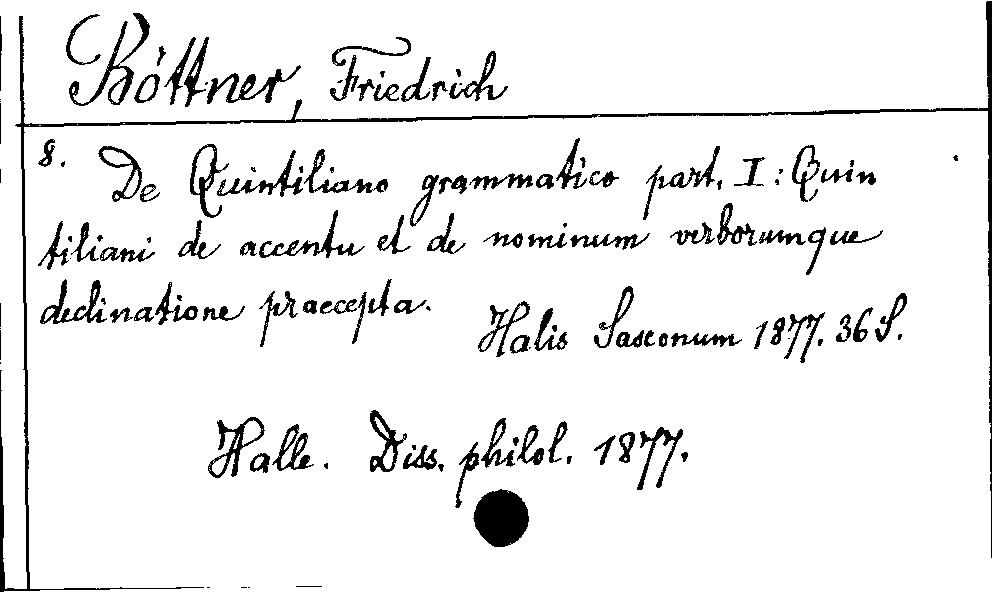 Böttner, Friedrich
8. De Quintiliano grammatico part. I : Quin
tiliani de accentu et de nominum verborumque
declinatione praecepta.
Halis Saxonum 1877. 36 S.
Halle. Diss. philol. 1877.